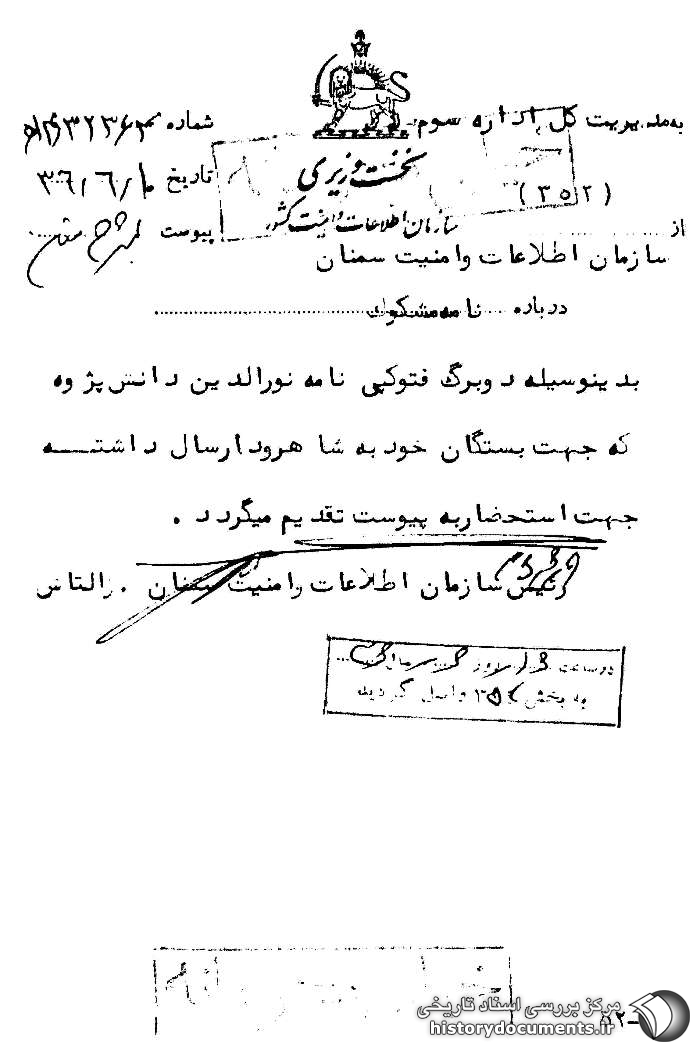 به مدیریت کل اداره سوم
(۳۵۲)
از
سازمان اطلاعات وامنیت سمنان
نخست وزیری
سازمان اطلاعات و امنیت کشور
شماره
تاریخ ۳۶/۶/۱۰
پیوست بشرح متن
درباره نامه مشکوک
بدینوسیله دوبرگ فتوکپی نامه نورالدین دانش پژوه
که جهت بستگان خود به شاهرود ارسال داشته
جهت استحضار به پیوست تقدیم میگردد .
رئیس سازمان اطلاعات وامنیت سمنان . رالتاش
در ساعت
به بخش ۳۵۲ واصل گردید
مرکز بررسی اسناد تاریخی
historydocuments.ir